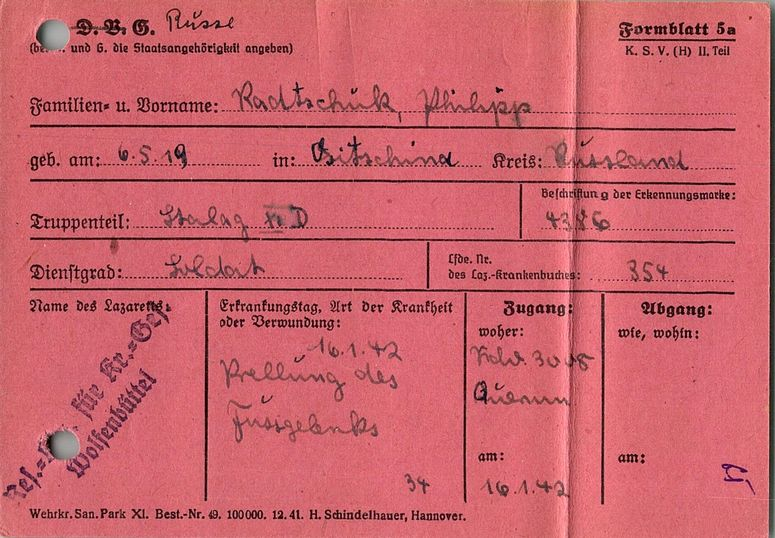 D. V. G. Russe
Formblatt 5a
(bei V. und G. die Staatsangehörigkeit angeben)
K. S. V. (H) II. Teil
Familien- u. Vorname: Radtschuk, Philipp
geb. am: 6.5.19 in: Kreis: Russland
Beschriftung der Erkennungsmarke:
Truppenteil: Stalag XI D 4386
Dienstgrad: Soldat
Lfde. Nr.
des Laz.-Krankenbuches: 354
Name des Lazaretts:
Res.- für Kr.-Gef.
Wolfenbüttel
Erkrankungstag, Art der Krankheit
oder Verwundung:
16.1.42
Prellung des
Fussgelenks
34
Zugang:
woher:
3005
Querum
am:
16.1.42
Abgang:
wie, wohin:
am:
Wehrkr. San. Park XI. Best.-Nr. 49. 100000. 12. 41. H. Schindelhauer, Hannover.